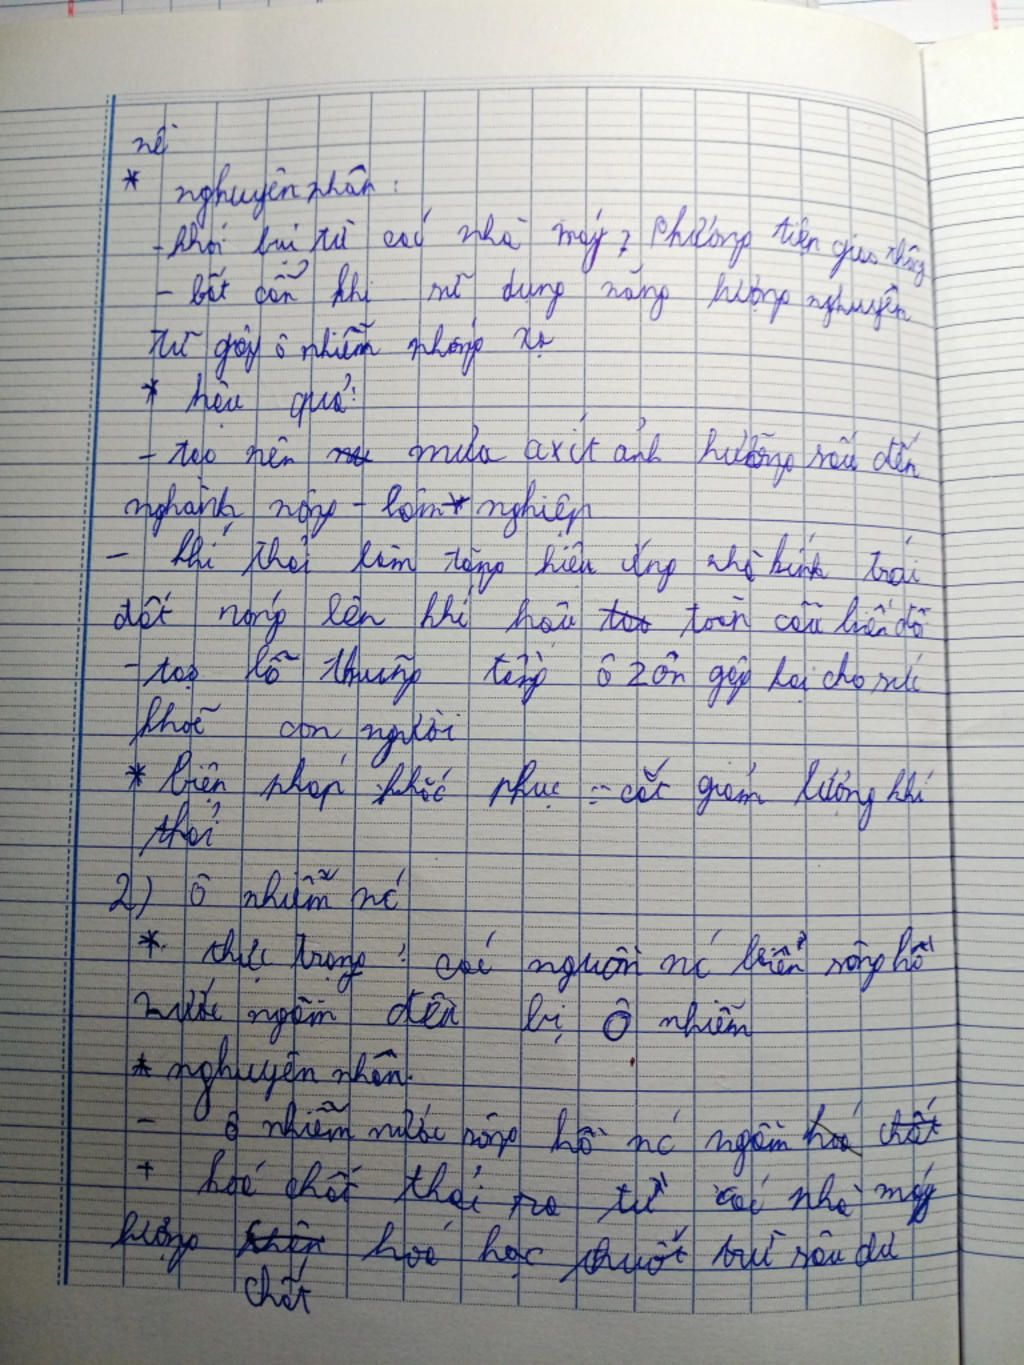 nề
* nghuyên nhân :
- khói bụi từ các nhà máy, phương tiện giao thông
- bất cẩn khi sử dụng năng lượng nghuyên
tử gây ô nhiễm phóng xạ
* hậu quả :
- tạo nên mưa axít ảnh hưởng sấu đến
nghành nông - lâm nghiệp
- khí thải làm tăng hiệu ứng nhà kính trái
đất nóng lên khí hậu toàn cầu biến đổ
- tạo lỗ thũng tầng ôzôn gây hại cho sức
khoẽ con người
* biện pháp khắc phục : cắt giảm lượng khí
thải
2) ô nhiễm nc
* thực trạng : các nguồn nc biển sông hồ
nước ngầm đều bị ô nhiễm
* nghuyên nhân.
- ô nhiễm nước sông hồ nc ngầm hoá chất
+ hoá chất thải ra từ các nhà máy
lượng hoá học thuốt trừ sâu dư
chất